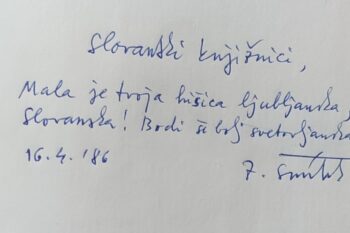 Slovanski knjižnici,
Mala je tvoja hišica ljubljanska,
Slovanska! Bodi še bolj svetovljanska
16. 4. '86